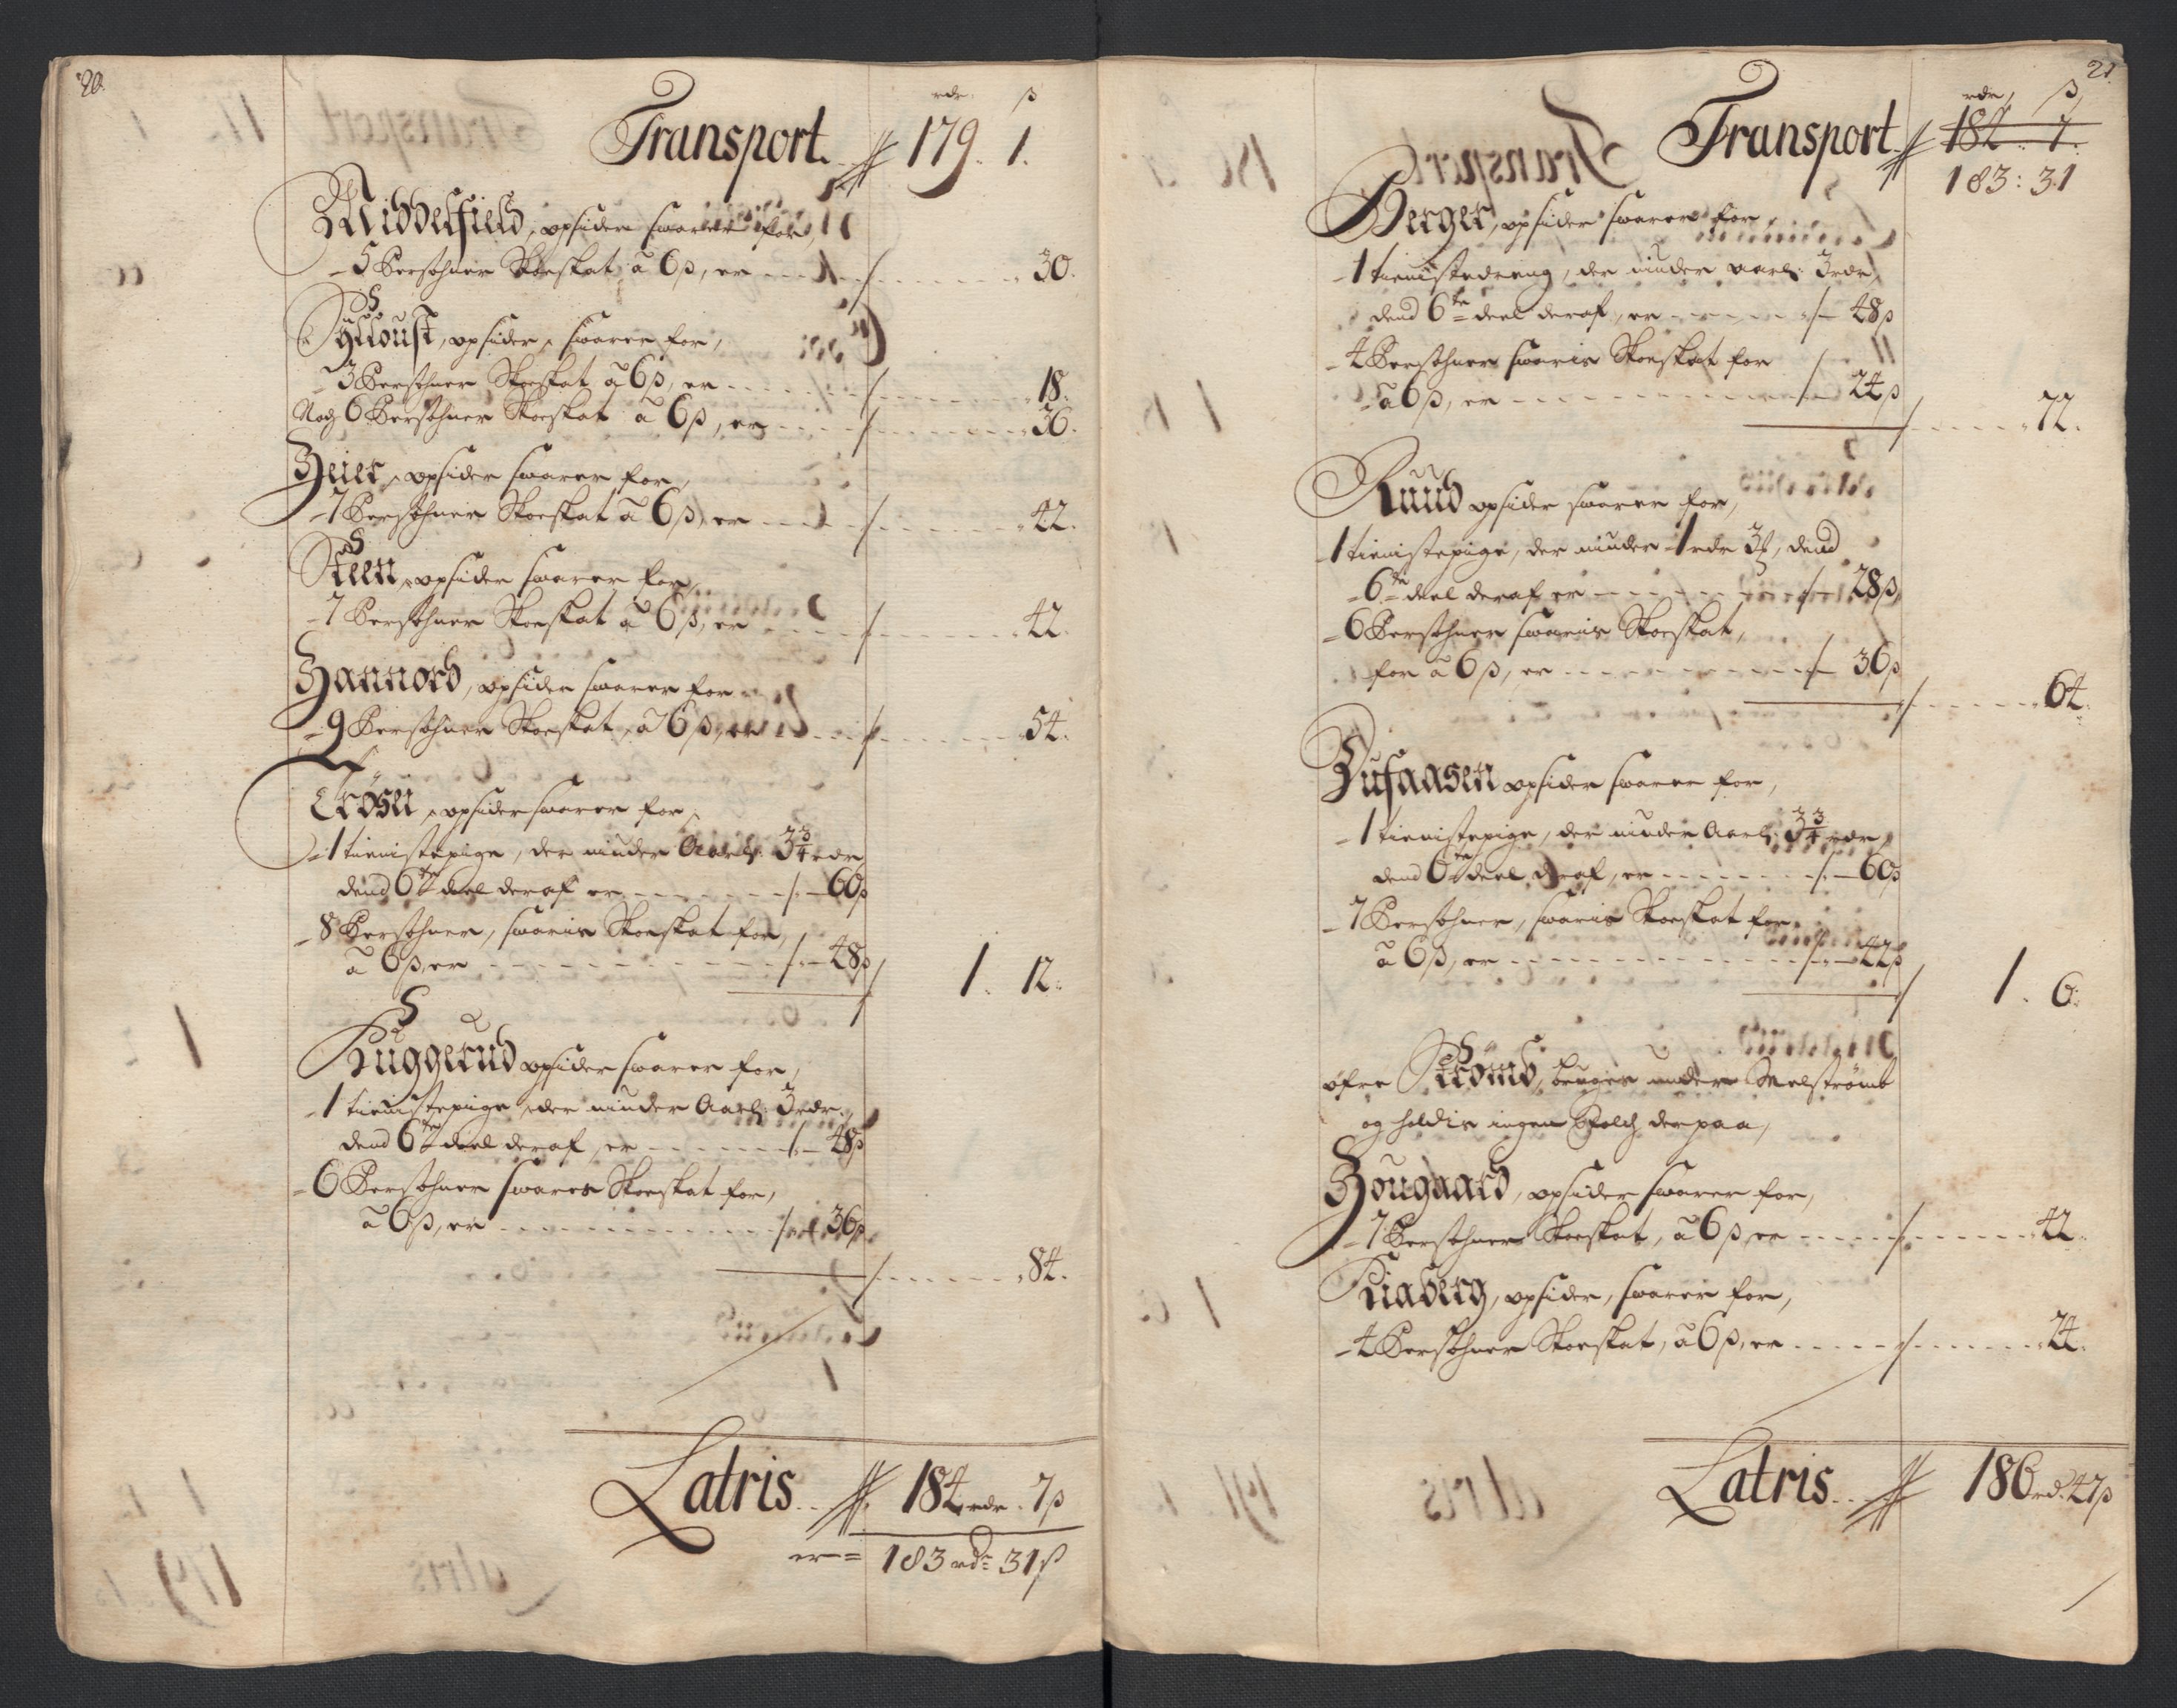 20.
rdr. ß
Transport. 179. 1.
Middelfield, opsider swarer for,
5 Persohner Skoeskat, â 6 ß, er 30.
Sylloust, opsider, swarer for,
3 Persohner Skoeskat â 6 ß, er 18.
Noch 6 Persohner Skoeskat â 6 ß, er 36.
Heier, opsider swarer for,
7 Persohner Skoeskat â 6 ß, er 42.
Steen, opsider swarer for,
7 Persohner Skoeskat â 6 ß, er 42.
Hannord, opsider swarer for
9 Persohner Skoeskat, â 6 ß, er 54.
Trösen, opsider swarer for,
1 tienistepige, der niuder Aarl: 3 3/4 rdr
dend 6te deel deraf er 60 ß
8 Persohner, swaris Skoeskat for,
â 6 ß, er 48 ß
1. 12.
Kuggerud opsider swarer for,
1 tienistepige, der niuder Aarl: 3 rdr.
dend 6te deel deraf, er 48 ß
6 Persohner swares Skoeskat for,
â 6 ß, er 36 ß
84.
Latris 184 rdr. 7 ß
er = 183 rdr 31 ß
21.
rdr, ß,
Transport 184. 7.
183: 31
Berger, opsider swarer for,
1 tienistedreng, der niuder aarl: 3 rdr,
dend 6te deel deraf, er 48 ß
4 Persohner swaris Skoeskat for
â 6 ß, er 24 ß
72.
Ruud opsider swarer for,
1 tienistepige, der niuder 1 rdr 3 , dend
6te deel deraf er 28 ß,
6 Persohner swaris Skoeskat,
for â 6 ß, er 36 ß
64.
Hufaasen opsider swarer for,
1 tienistepige, der niuder Aarl: 3 3/4 rdr,
dend 6te deel deraf, er 60 ß
7 Persohner, swaris Skoeskat for
â 6 ß, er 42 ß
1. 6.
øfre Strömb, bruges under Melströmb
og holdis ingen Folch derpaa,
Hougaard, opsider swarer for,
7 Persohner Skoeskat, â 6 ß, er 42.
Kiaberg, opsider, swarer for,
4 Persohner Skoeskat, â 6 ß, er 24.
Latris 186 rd. 47 ß